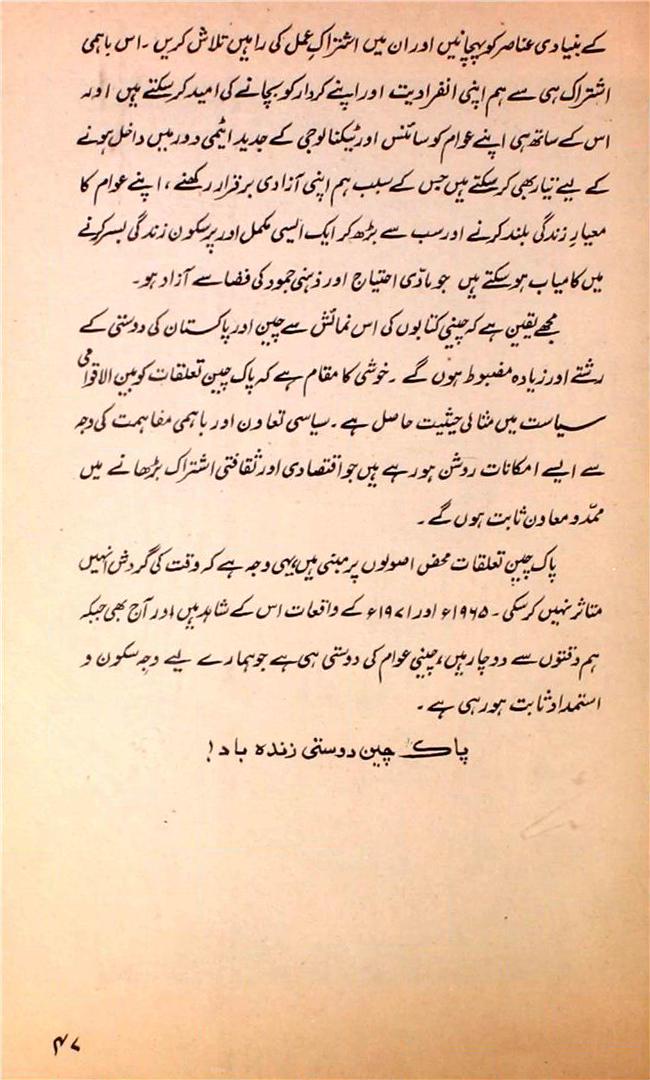 کے بنیادی عناصر کو پہچانیں اور ان میں اشتراکِ عمل کی راہیں تلاش کریں ۔ اس باہمی
اشتراک ہی سے ہم اپنی انفرادیت اور اپنے کردار کو بچانے کی امید کر سکتے ہیں اور
اس کے ساتھ ہی اپنے عوام کو سائنس اور ٹیکنالوجی کے جدید ایٹمی دور میں داخل ہونے
کے لیے تیار بھی کر سکتے ہیں جس کے سبب ہم اپنی آزادی برقرار رکھنے ، اپنے عوام کا
معیارِ زندگی بلند کرنے اور سب سے بڑھ کر ایک ایسی مکمل اور پرسکون زندگی بسر کرنے
میں کامیاب ہو سکتے ہیں جو مادّی احتیاج اور ذہنی جمود کی فضا سے آزاد ہو ۔
مجھے یقین ہے کہ چینی کتابوں کی اس نمائش سے چین اور پاکستان کی دوستی کے
رشتے اور زیادہ مضبوط ہوں گے ۔ خوشی کا مقام ہے کہ پاک چین تعلقات کو بین الاقوامی
سیاست میں مثالی حیثیت حاصل ہے ۔ سیاسی تعاون اور باہمی مفاہمت کی وجہ
سے ایسے امکانات روشن ہو رہے ہیں جو اقتصادی اور ثقافتی اشتراک بڑھانے میں
ممدّ و معاون ثابت ہوں گے ۔
پاک چین تعلقات محض اصولوں پر مبنی ہیں یہی وجہ ہے کہ وقت کی گردش انہیں
متاثر نہیں کر سکی ۔ ۱۹۶۵ء اور ۱۹۷۱ء کے واقعات اس کے شاہد ہیں اور آج بھی جبکہ
ہم دقتوں سے دوچار ہیں، چینی عوام کی دوستی ہی ہے جو ہمارے لیے وجہِ سکون و
استمداد ثابت ہو رہی ہے ۔
پاک چین دوستی زندہ باد !
۴۷